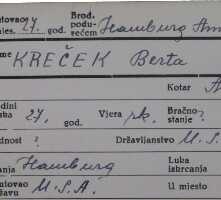 utovao
mjes. 27. god. Brod. podu-
rećem Hamburg Am
me KREČEK Berta
Kotar A
dini
ska 27. Vjera rk. Bračno-
stanje ?
dnost ? Državljanstvo U. S.
anja Hamburg Luka
iskrcanja
utovao U. S. A. U mjesto
žavu